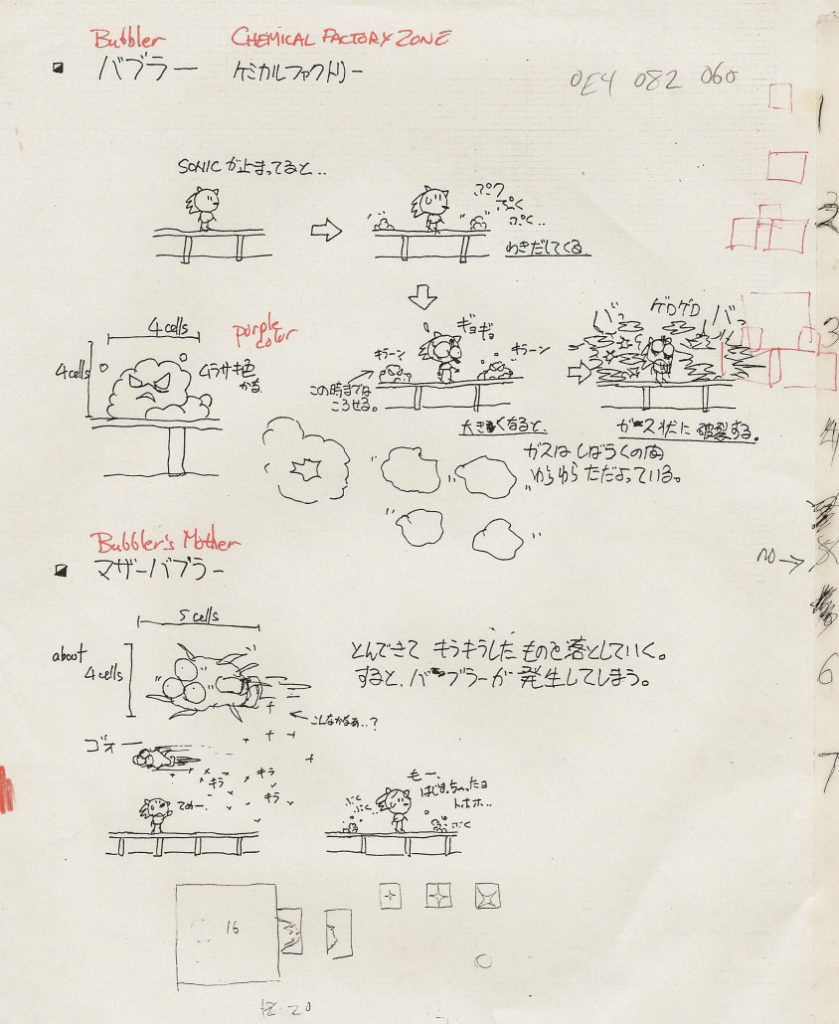 Bubbler CHEMICAL FACTORY ZONE
バブラー ケミカルファクトリー
0E4 082 060
1
SONICが止まってると..
ぷク
ぷく
ぷく..
わきだしてくる
2
4cells
purple color
4cells
ムラサキ色
かな
キラーン
ギョギョ
キラーン
この時までは
ころせる。
大きくなると、
バッ ゲロゲロ バッ
ガース状に破裂する。
3
ガスはしばらくの間
ゆらゆらただよっている。
4
Bubbler's Mother
マザーバブラー
no →
5 cells
about
4 cells
とんできて キラキラしたものを落としていく。
すると、バーブラーが発生してしまう。
6
こんなかなぁ..?
ゴォー
キラ
キラ
キラ
てめー.
もー、
はじまっちゃったヨ
トホホ...
ぷく
ぷく
ぷく
7
16